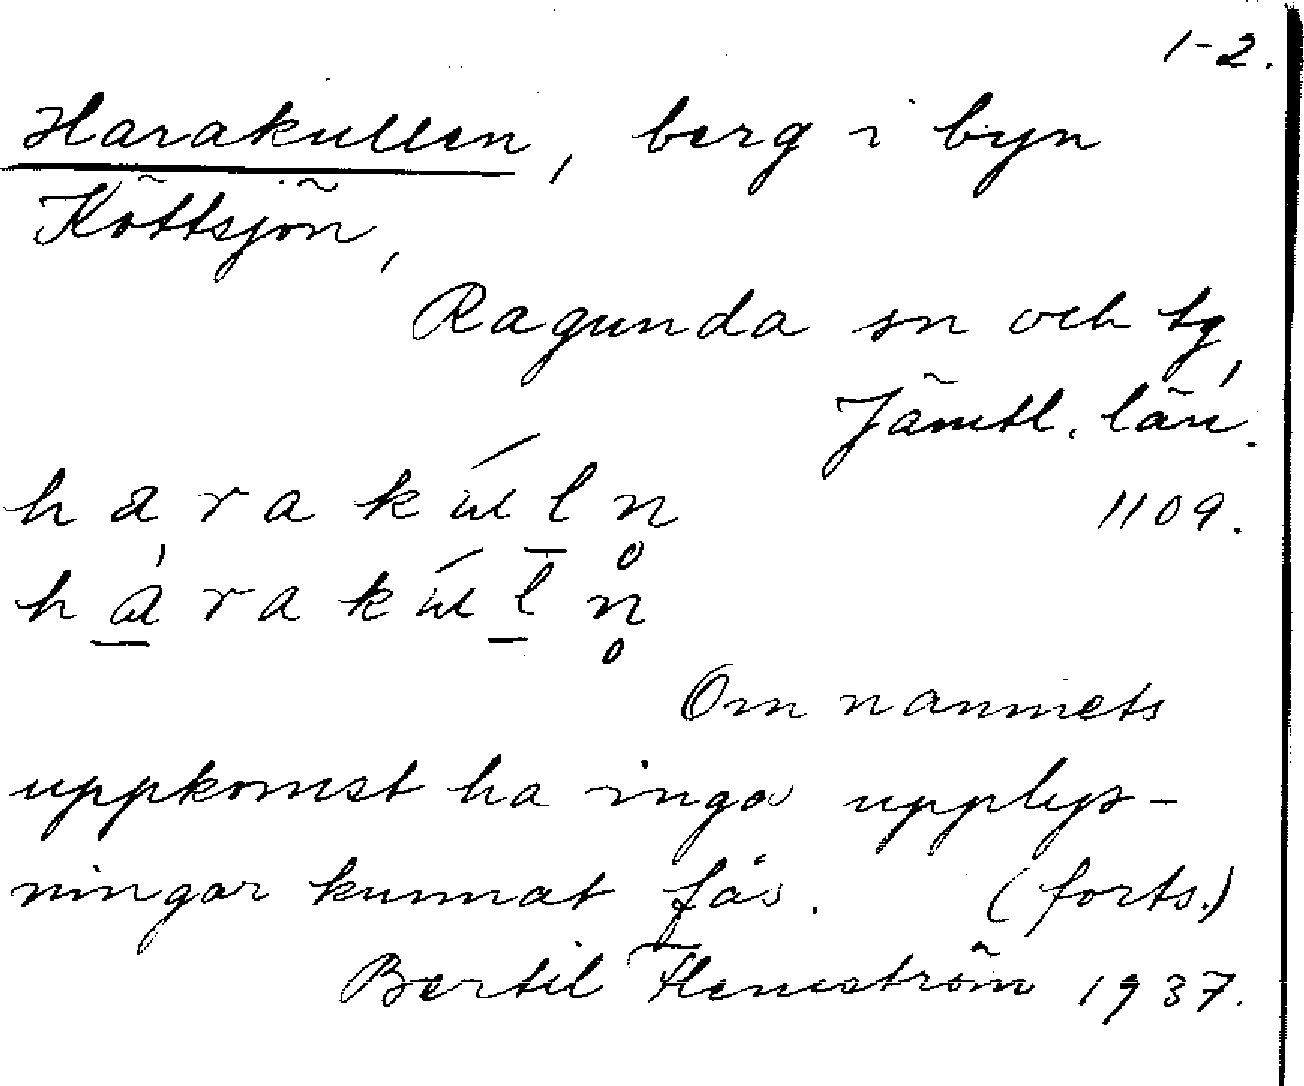 1-2.
Harakullen, berg i byn
Köttsjön,
Ragunda sn och tg,
Jämtl. län.
h a r a k ú l n̥
1109.
h a̲ r a k ú l̲ n̥
Om namnets
uppkomst ha inga upplys-
ningar kunnat fås. (forts.)
Bertil Flemström 1937.